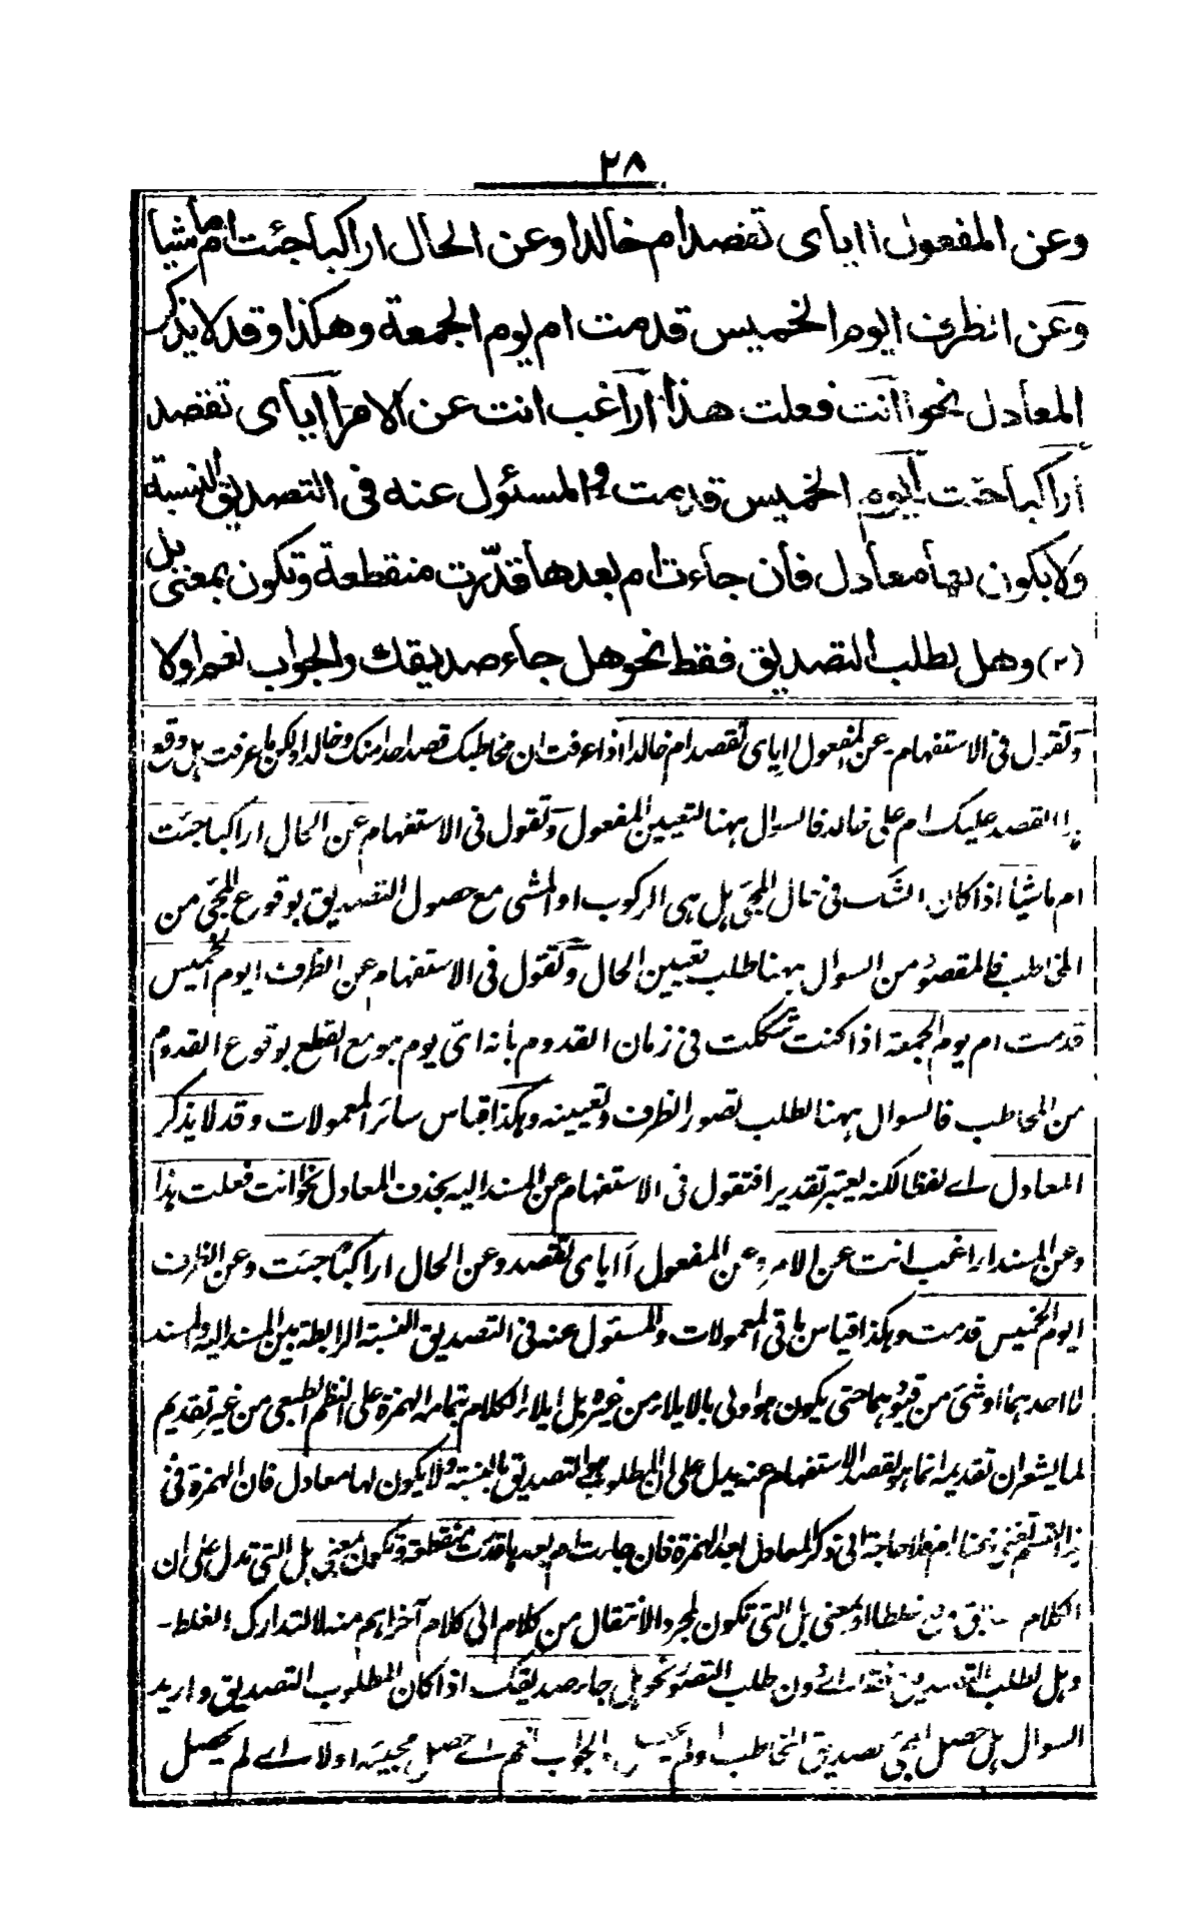 ٢٨
وعن المفعول أاياى تقصد ام خالدا وعن الحال اراكبا جئت ام ماشيا
وعن الظرف ايوم الخميس قدمت ام يوم الجمعة وهكذا وقد لا يذكر
المعادل نحو أانت فعلت هذا أراغب انت عن الامر أاياى تقصد
أراكبا جئت أيوم الخميس قدمت والمسئول عنه فى التصديق النسبة
ولا يكون لها معادل فان جاءت ام بعدها قدّرت منقطعة وتكون بمعنى بل
(٢) وهل لطلب التصديق فقط نحو هل جاء صديقك والجواب نعم اولا
وتقول فى الاستفهام عن المفعول اياى تقصد ام خالدا اذا عرفت ان مخاطبك قصد احدا منك وخالدا ولكن ما عرفت هل وقع
هذا القصد عليك ام على خالد فالسوال ههنا لتعيين المفعول وتقول فى الاستفهام عن الحال اراكبا جئت
ام ماشيا اذا كان الشك فى حال المجئ هل هى الركوب او المشى مع حصول التصديق بوقوع المجئ من
المخاطب فالمقصود من السوال ههنا طلب تعيين الحال وتقول فى الاستفهام عن الظرف ايوم الخميس
قدمت ام يوم الجمعة اذا كنت شككت فى زمان القدوم بانه اىّ يوم هو مع القطع بوقوع القدوم
من المخاطب فالسوال ههنا لطلب تصور الظرف وتعيينه وهكذا قياس سائر المعمولات وقد لا يذكر
المعادل اے لفظا لكنه يعتبر تقديرا فتقول فى الاستفهام عن المسند اليه بحذف المعادل نحو انت فعلت هذا
وعن المسند اراغب انت عن الامر وعن المفعول أاياى تقصد وعن الحال اراكبا جئت وعن الظرف
ايوم الخميس قدمت وهكذا قياس باقى المعمولات والمسئول عنه فى التصديق النسبة الرابطة بين المسند اليه والمسند
لا احدهما او شئ من قيودهما حتى يكون هو اولى بالايلاء من غيره بل ايلاء الكلام بتمامه الهمزة على النظم الطبعى من غير تقديم
لما يشعر ان تقديمه انما هو لقصد الاستفهام عنه يدل على ان المطلوب هو التصديق بالنسبة ولا يكون لها معادل فان الهمزة فى
هذا القسم فلا حاجة الى ذكر المعادل بعد الهمزة فان جاءت ام بعدها قدرت منقطعة وتكون بمعنى بل التى تدل على ان
الكلام غلطا او بمعنى بل التى تكون لمجرد الانتقال من كلام الى كلام آخر اهم منه لا لتدارك الغلط -
وهل لطلب التصديق فقط اے دون طلب التصور نحو هل جاء صديقك اذا كان المطلوب التصديق واريد
السوال هل حصل المجئ لصديق المخاطب او لم يحصل والجواب نعم اے حصل مجيئه اولا اے لم يحصل